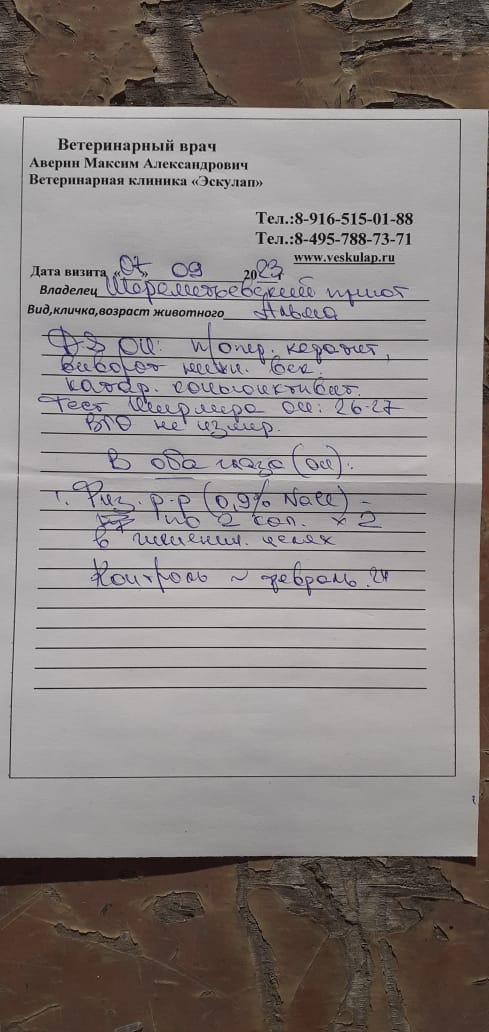 Ветеринарный врач
Аверин Максим Александрович
Ветеринарная клиника «Эскулап»
Тел.:8-916-515-01-88
Тел.:8-495-788-73-71
www.veskulap.ru
Дата визита «07» 09 2023
Владелец Шереметьевский приют
Вид,кличка,возраст животного Альма
ДЗ OU: п/опер. кератит,
выворот нижн. век.
катар. конъюнктивит.
Тест Ширмера OU: 26-27
ВГД не измер.
В оба глаза (OU):
1. Физ. р-р (0,9% NaCl) –
по 2 кап. x 2
в гигиенич. целях
Контроль ~ февраль. 24